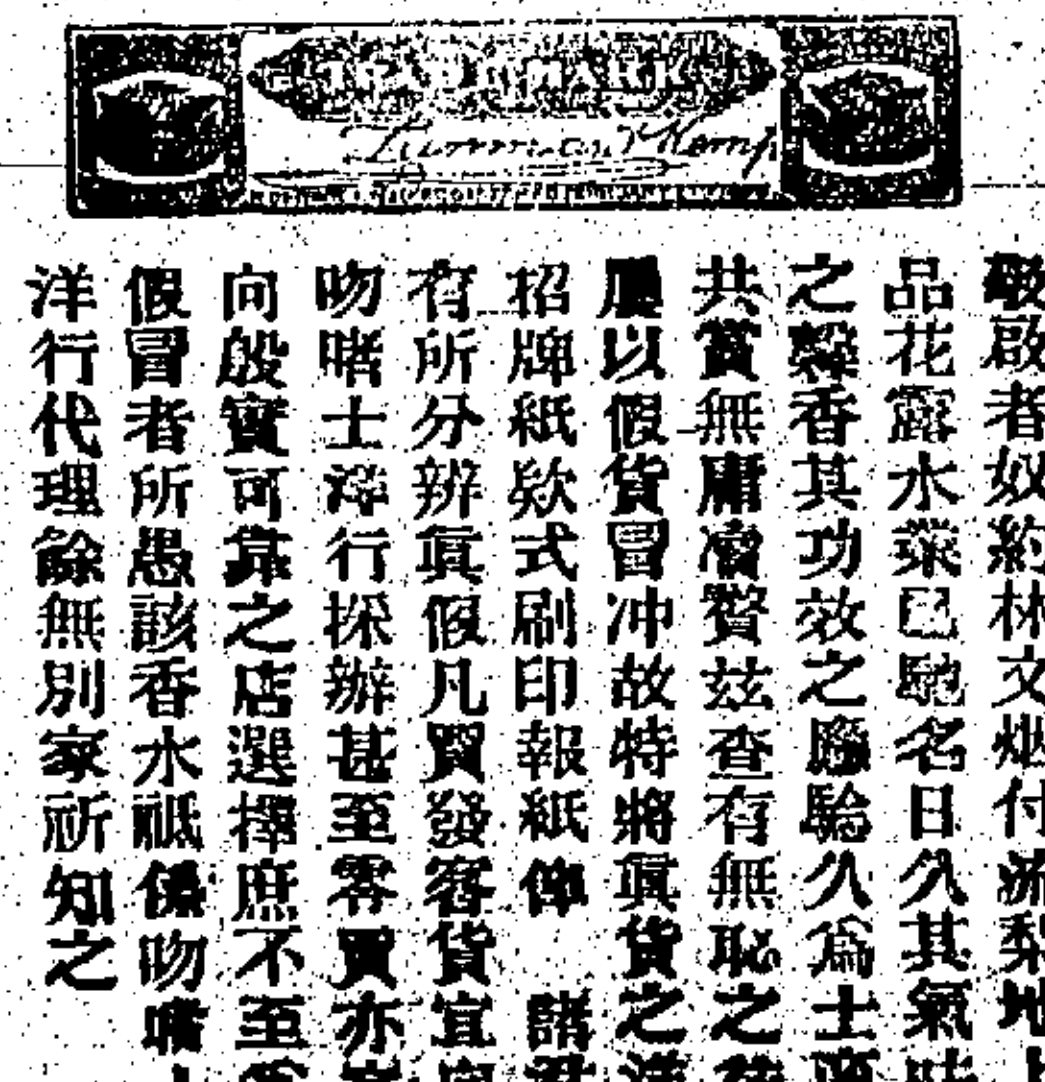 TRADE MARK
Lanman & Kemp
敬啟者奴約林文烟付流梨地
品花露水業已馳名日久其氣味
之馨香其功效之勝驗久為士商
共賞無庸瀆贅玆查有無恥之
以假貨冒冲故特將眞貨之
招牌紙欵式刷印報紙俾 諸君
有所分辨眞假凡買發客貨宜向
吻啫士洋行採辦甚至零買亦宜
向殷實可靠之店選擇庶不至
假冒者所愚該香水祗係吻啫
洋行代理餘無別家祈知之